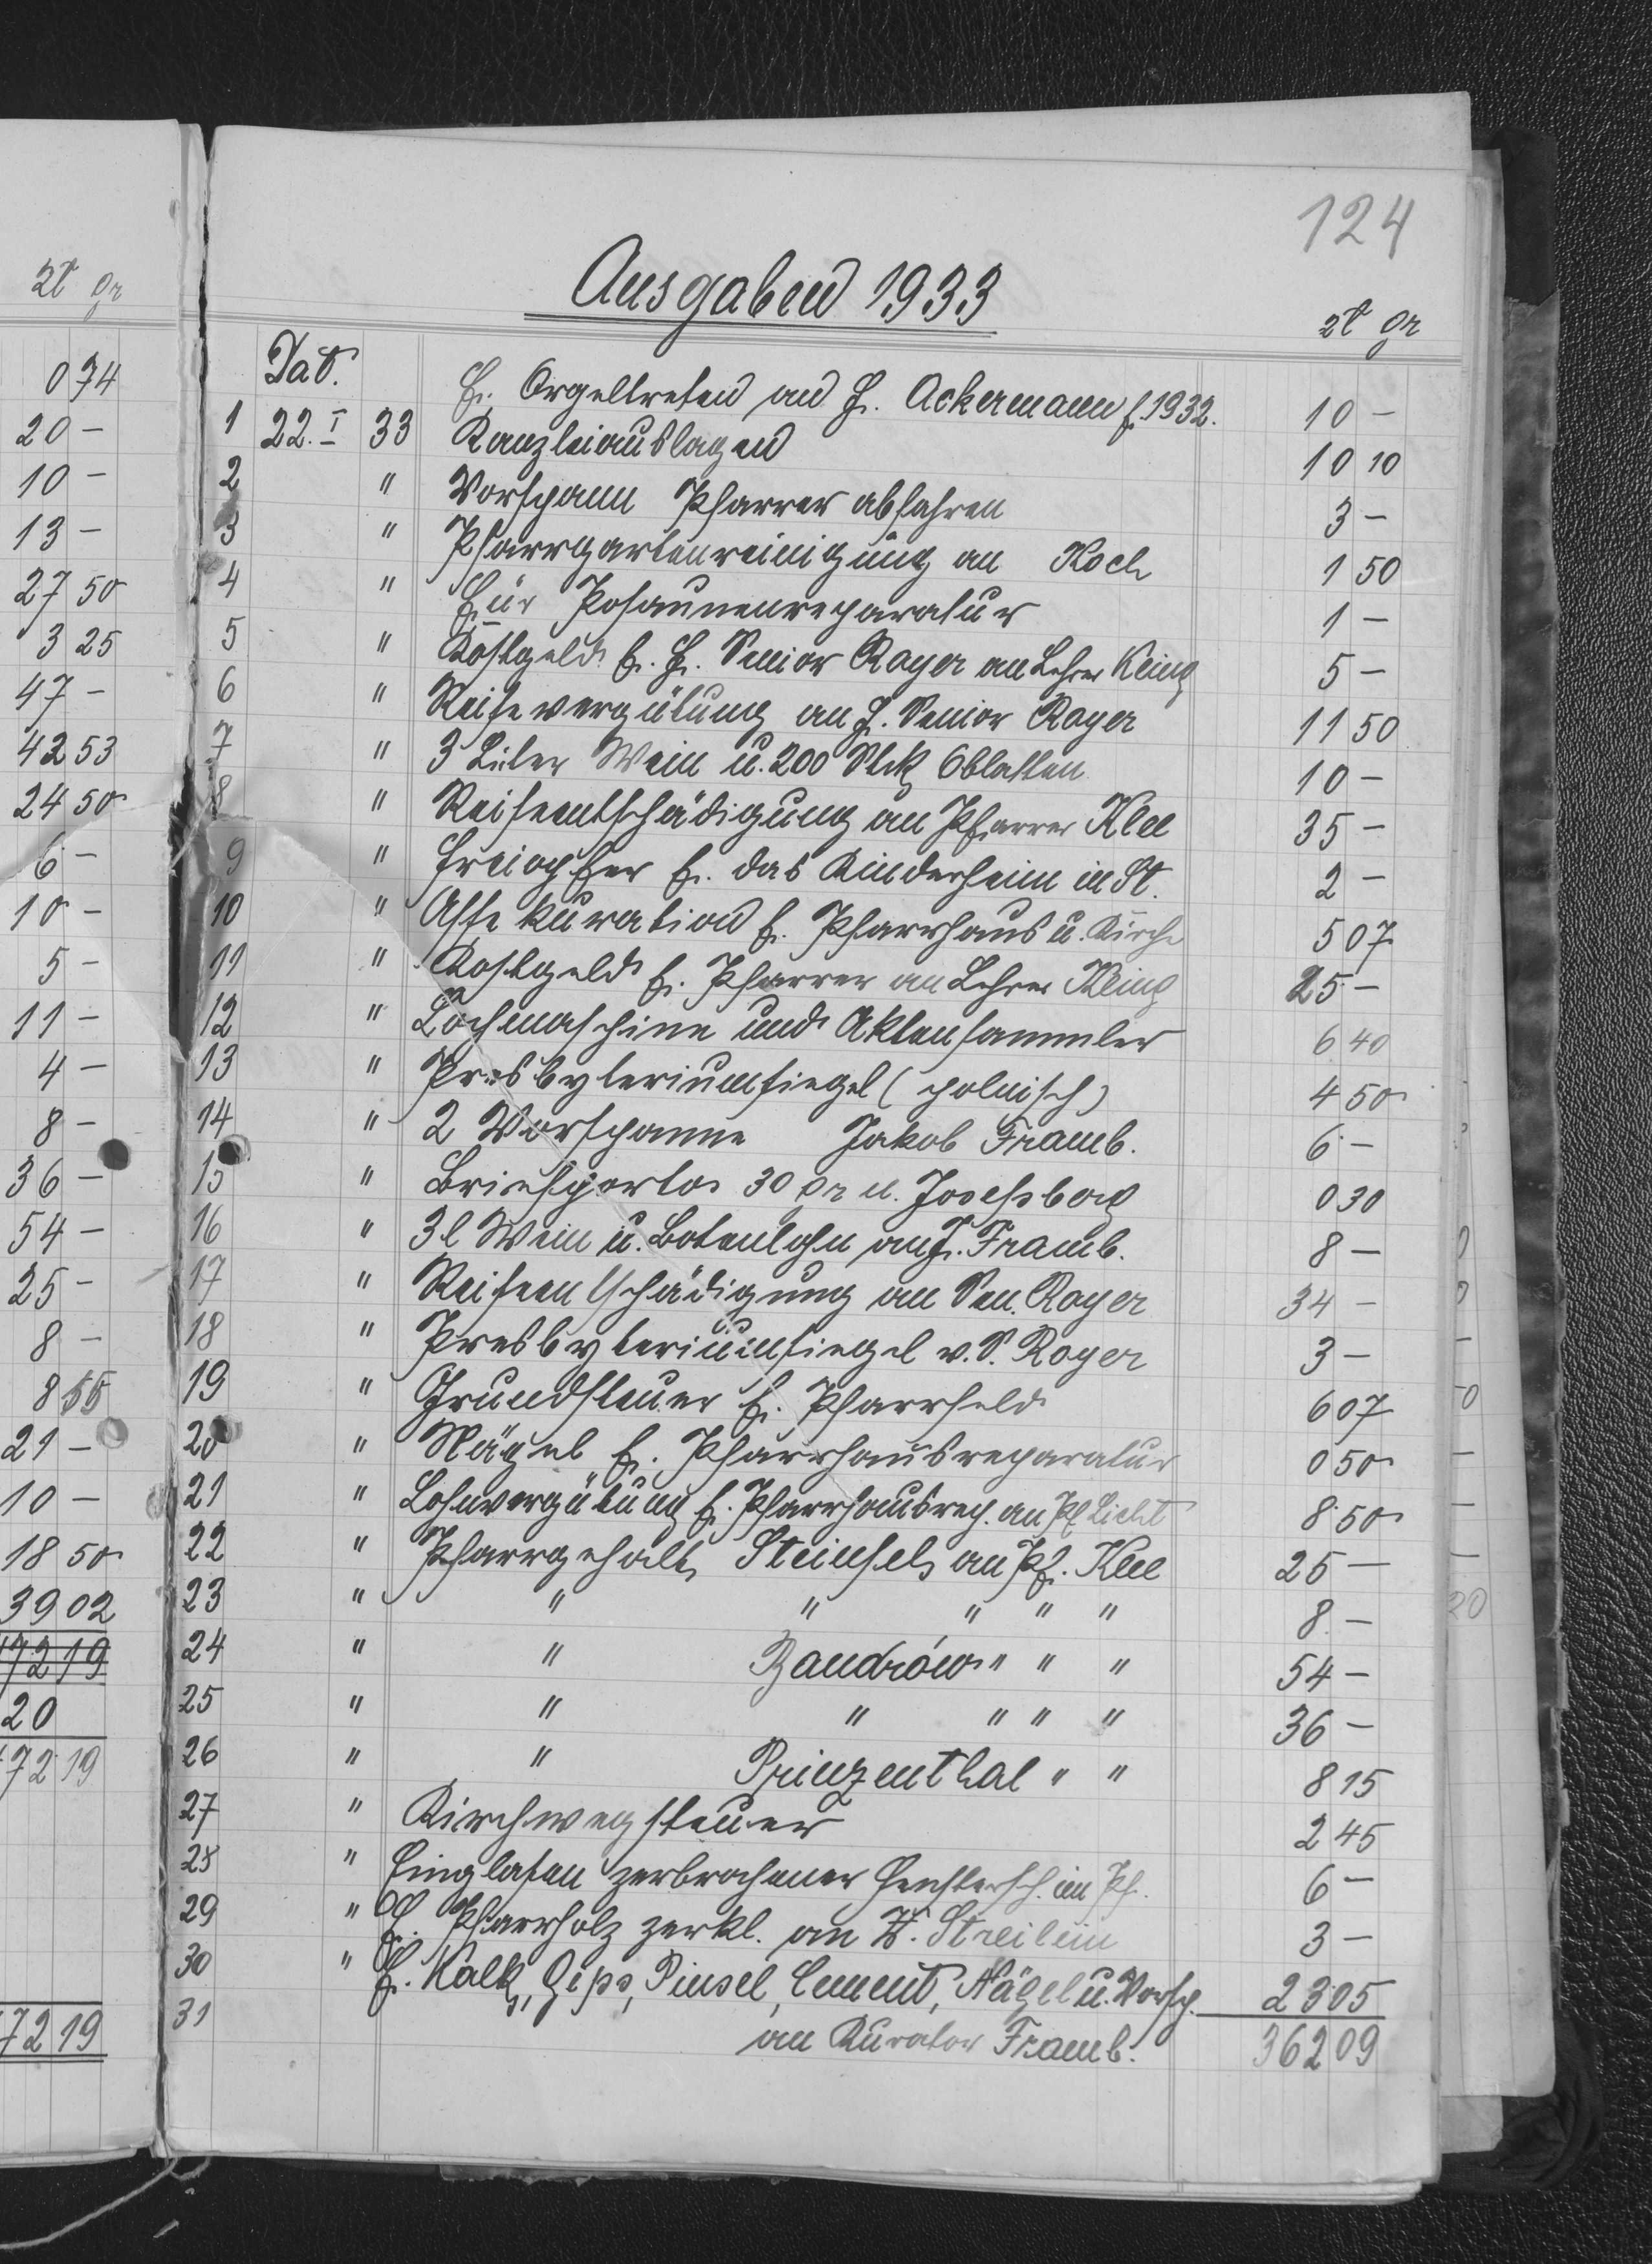 124
Ausgaben 1933
zł gr
Dat.
1 22. I 33 F. Orgeltreten an H. Ackermann f. 1932. 10 -
2 " Kanzleiauslagen 10 10
3 " Vorspann Pfarrer abfahren 3 -
4 " Pfarrgartenreinigung an Koch 1 50
5 " Für Posaunenreparatur 1 -
6 " Kostgeld f. H. Senior Royer an Lehrer Kling 5 -
7 " Reisevergütung an H. Senior Royer 11 50
8 " 3 Liter Wein u. 200 Stck Oblatten 10 -
9 " Reiseentschädigung an Pfarrer Klee 35 -
10 " Freiopfer f. das Kinderheim in St. 2 -
11 " Assekuration f. Pfarrhaus u. Kirche 5 07
12 " Kostgeld f. Pfarrer an Lehrer Kling 25 -
13 " Lochmaschine und Aktensammler 6 40
14 " Presbyteriumsiegel (polnisch) 4 50
15 " 2 Vorspanne Jakob Framb. 6 -
16 " Briefporto 30 gr n. Josefsberg 0 30
17 " 3 l Wein u. Botenlohn an J. Framb. 8 -
18 " Reiseentschädigung an Sen. Royer 34 -
19 " Presbyteriumsiegel v. S. Royer 3 -
20 " Grundsteuer f. Pfarrfeld 6 07
21 " Nägel f. Pfarrhausreparatur 0 50
22 " Lohnvergütung f. Pfarrhausrep. an Ph Licht 8 50
23 " Pfarrgehalt, Steinfels an Pf. Klee 25 -
24 " " " " " " 8 -
25 " " Bandrów " " " 54 -
26 " " " " " " 36 -
27 " " Prinzenthal " " 8 15
28 " Kirchwegsteuer 2 45
29 " Einglasen zerbrochener Fenstersch. im Pf. 6 -
30 " F. Pfarrholz zerkl. an F. Streilein 3 -
31 " F. Kalk, Gips, Pinsel, Cement, Nägel u. Vorsp. 23 05
an Kurator Framb. 362 09
zł gr
0 74
20 -
10 -
13 -
27 50
3 25
47 -
42 53
24 50
6 -
10 -
5 -
11 -
4 -
8 -
36 -
54 -
25 -
8 -
8 55
21 -
10 -
18 50
39 02
72 19
20
72 19
72 19